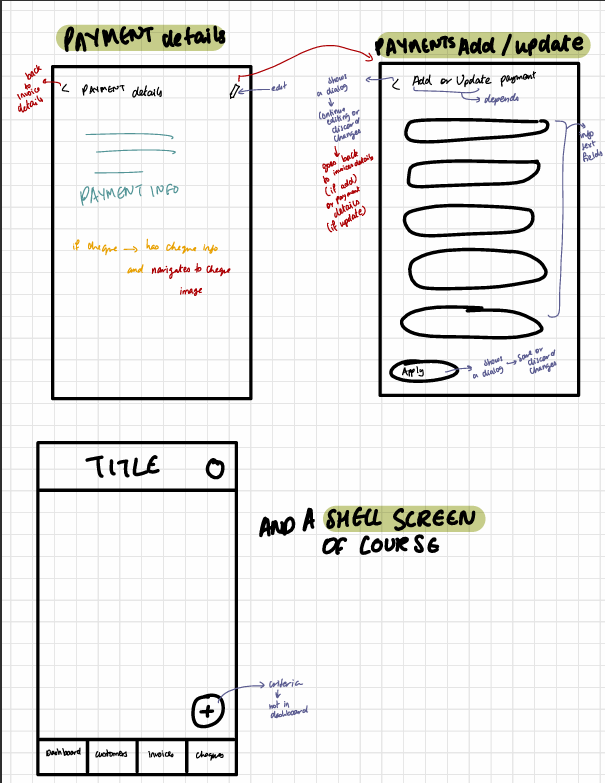 PAYMENT details
back
to
invoice
details
< PAYMENT details
edit
PAYMENT INFO
if cheque → has cheque info
and navigates to cheque
image
PAYMENTS Add / update
shows
a dialog
continue
editing or
discard
changes
goes back
to invoice details
(if add)
or payment
details
(if update)
< Add or Update payment
depends
info
text
fields
Apply
shows
a dialog
→ Save or
discard
changes
TITLE
AND A SHELL SCREEN
OF COURSE
+
criteria
not in
dashboard
Dashboard
customers
invoices
Cheques